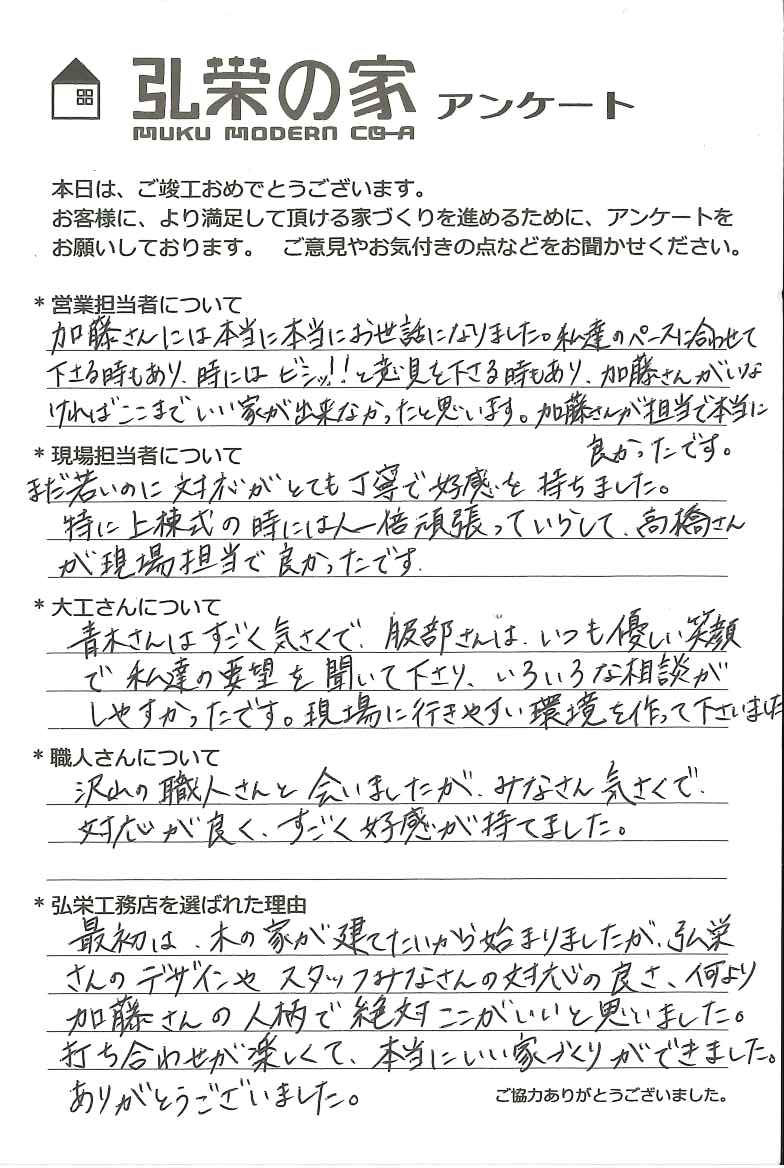 弘栄の家 アンケート
MUKU MODERN CO-A
本日は、ご竣工おめでとうございます。
お客様に、より満足して頂ける家づくりを進めるために、アンケートを
お願いしております。 ご意見やお気付きの点などをお聞かせください。
*営業担当者について
加藤さんには本当に本当にお世話になりました。私達のペースに合わせて
下さる時もあり、時にはビシッ!!と意見を下さる時もあり、加藤さんがいな
ければここまでいい家が出来なかったと思います。加藤さんが担当で本当に
良かったです。
*現場担当者について
まだ若いのに対応がとても丁寧で好感を持ちました。
特に上棟式の時には人一倍頑張っていらして、高橋さん
が現場担当で良かったです.
*大工さんについて
青木さんはすごく気さくで、服部さんは、いつも優しい笑顔
で私達の要望を聞いて下さり、いろいろな相談が
しやすかったです。現場に行きやすい環境を作って下さいました
*職人さんについて
沢山の職人さんと会いましたが、みなさん気さくで、
対応が良く、すごく好感が持てました。
*弘栄工務店を選ばれた理由
最初は、木の家が建てたいから始まりましたが、弘栄
さんのデザインやスタッフみなさんの対応の良さ、何より
加藤さんの人柄で絶対ここがいいと思いました。
打ち合わせが楽しくて、本当にいい家づくりができました。
ありがとうございました。
ご協力ありがとうございました。